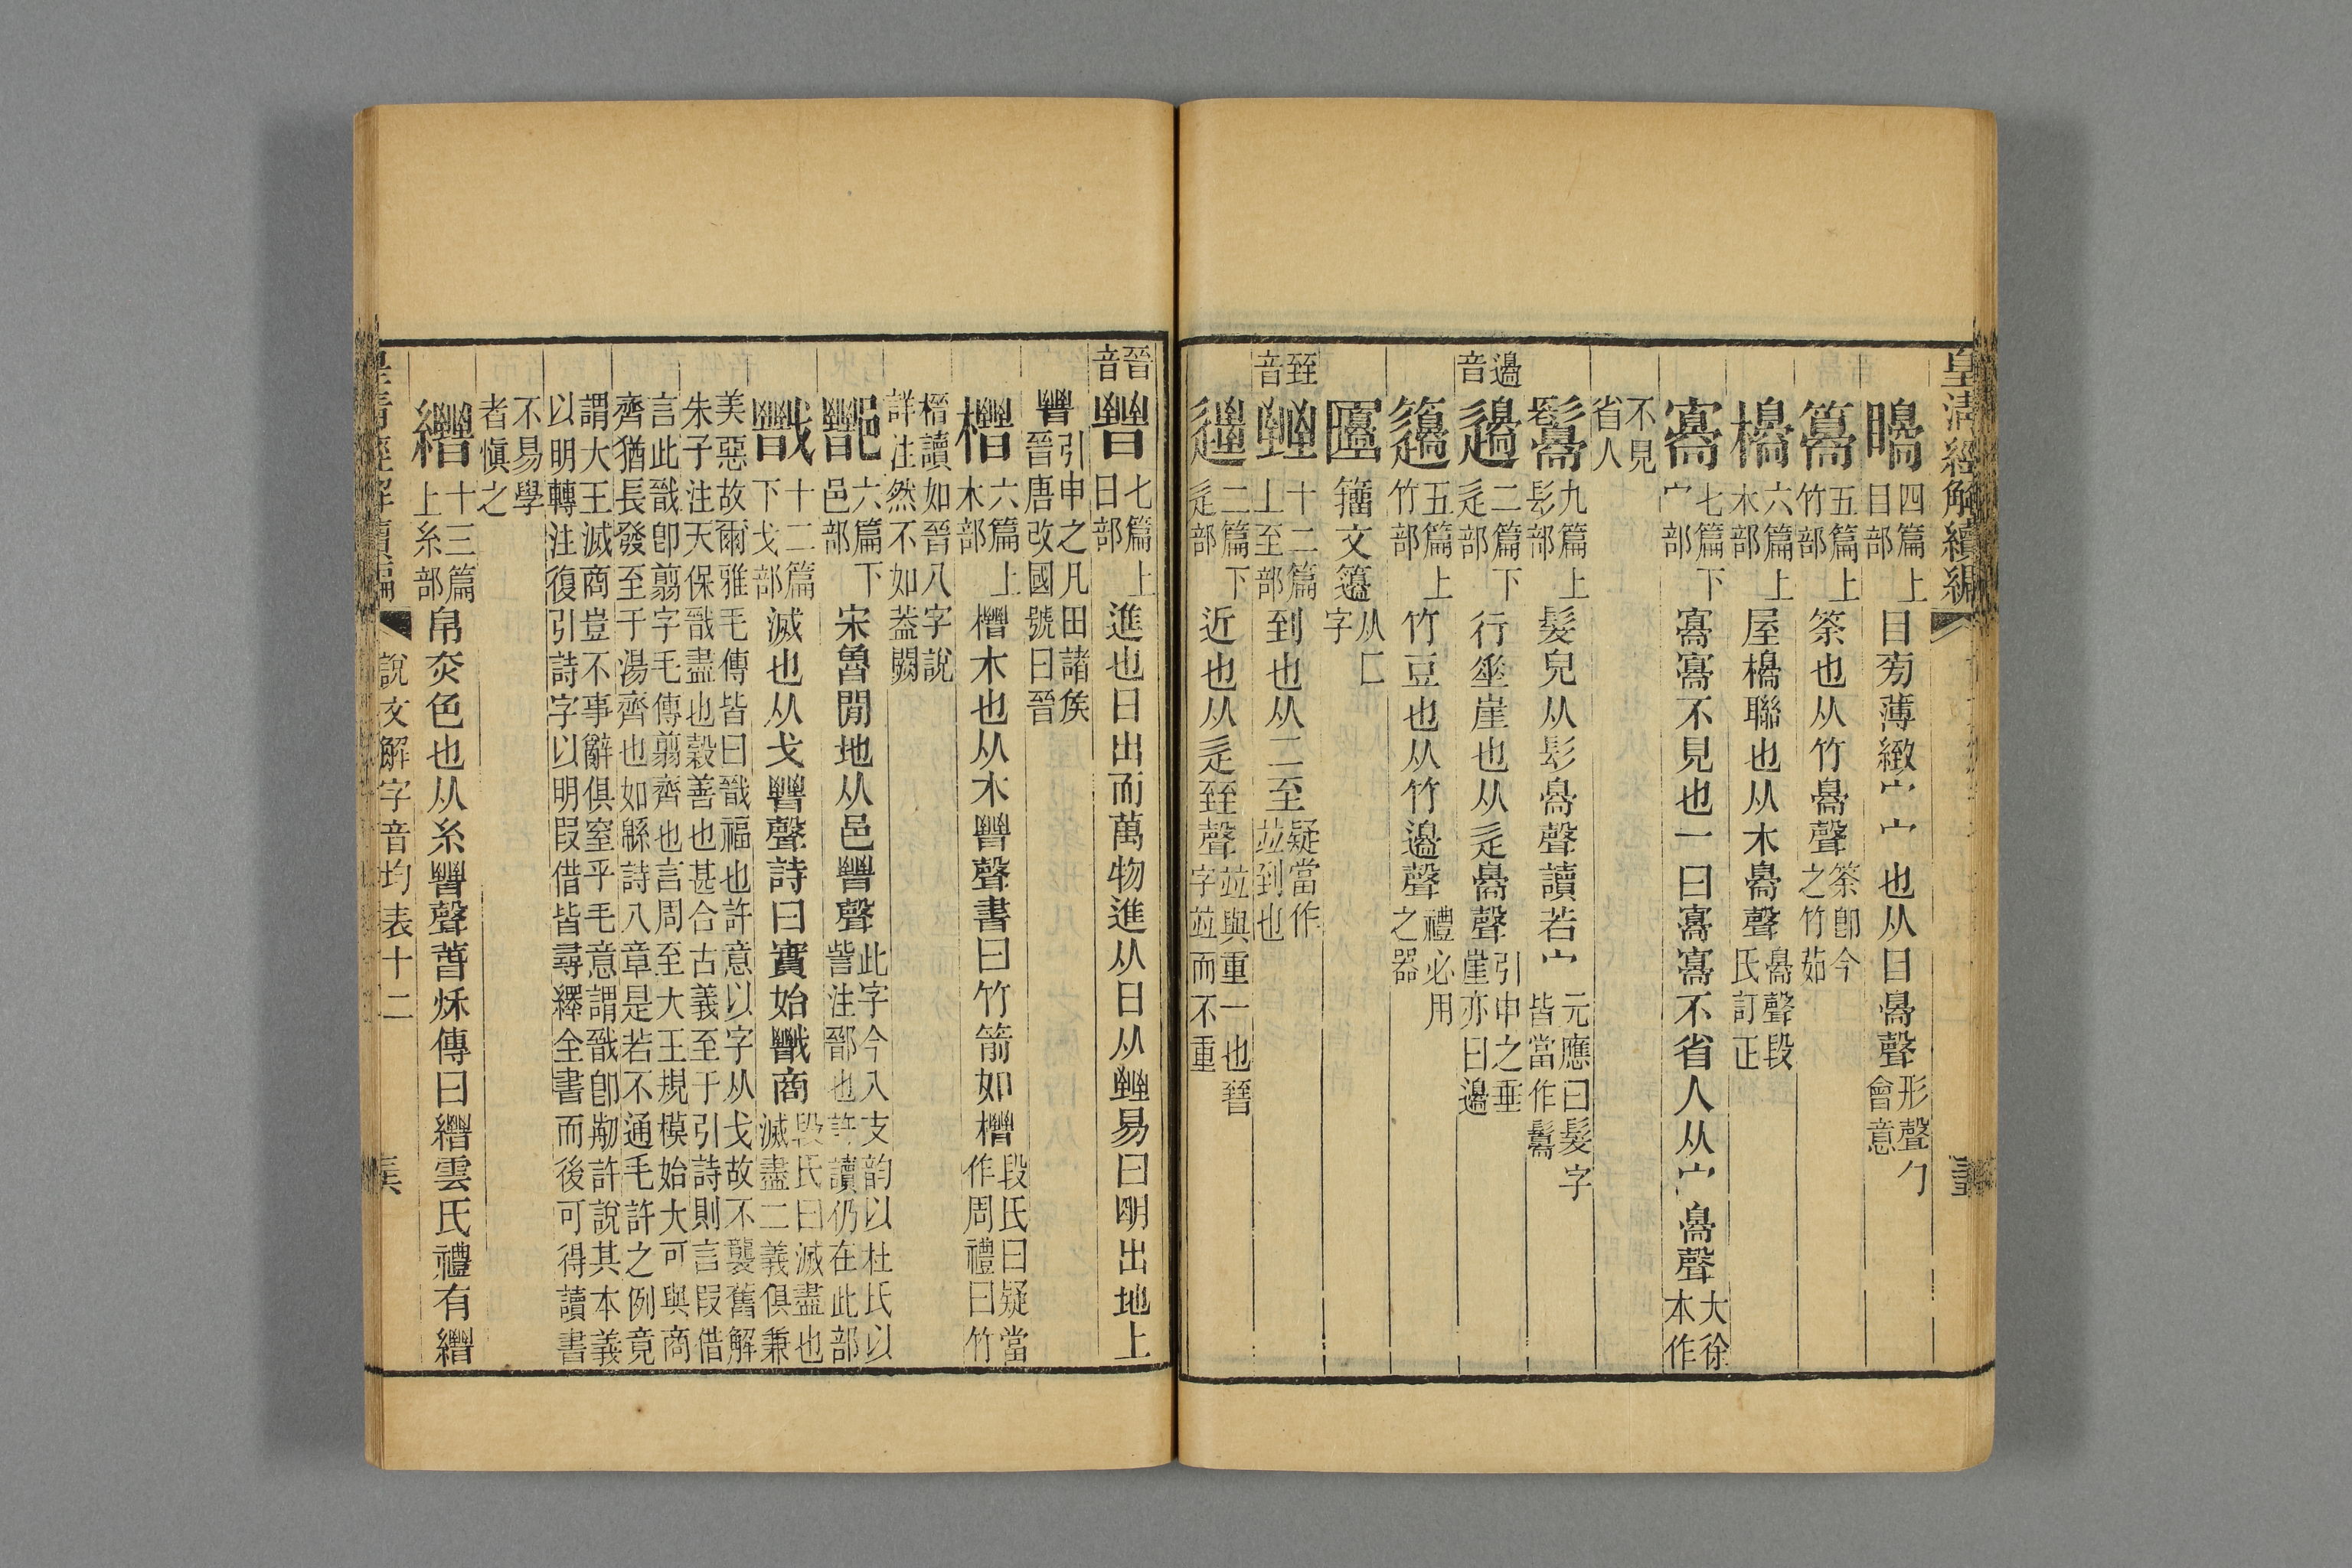 皇清經解續編
矏四篇上目部目㫄薄緻宀宀也从目臱聲形聲勹會意
籩五篇上竹部筡也从竹臱聲筡卽今之竹茹
櫋六篇上木部屋櫋聯也从木臱聲臱聲段氏訂正
寱七篇下宀部寱寱不見也一曰寱寱不省人从宀臱聲大徐本作
不見省人
鬗九篇上髟部髮皃从髟臱聲讀若宀元應曰髮字皆當作鬗
邊音
邊二篇下辵部行垂崖也从辵臱聲引申之垂崖亦曰邊
籩五篇上竹部竹豆也从竹邊聲禮必用之器
籒文籩从匚字
臸音
臸十二篇上至部到也从二至疑當作竝到也
二篇下辵部近也从辵臸聲竝與重一也晉字竝而不重
晉音
晉七篇上日部進也日出而萬物進从日从臸易曰明出地上
晉引申之凡田諸矦晉唐改國號曰晉
榗六篇上木部榗木也从木晉聲書曰竹箭如榗段氏曰疑當作周禮曰竹
榗讀如晉八字說詳注然不如葢闕
鄑六篇下邑部宋魯閒地从邑晉聲此字今入支韵以杜氏以訾注鄑也許讀仍在此部
戩十二篇下戈部滅也从戈晉聲詩曰實始戩商段氏曰滅盡也滅盡二義俱兼
美惡故爾雅毛傳皆曰戩福也許意以字从戈故不襲舊解
朱子注天保戩盡也穀善也甚合古義至于引詩則言叚借
言此戩卽翦字毛傳翦齊也言周至大王規模始大可與商
齊猶長發至于湯齊也如緜詩八章是若不通毛許之例竟
謂大王滅商豈不事辭俱窒乎毛意謂戩卽剪許說其本義
以明轉注復引詩字以明叚借皆尋繹全書而後可得讀書
不易學者愼之
縉十三篇上糸部帛赤色也从糸晉聲春秋傳曰縉雲氏禮有縉
說文解字音均表十二